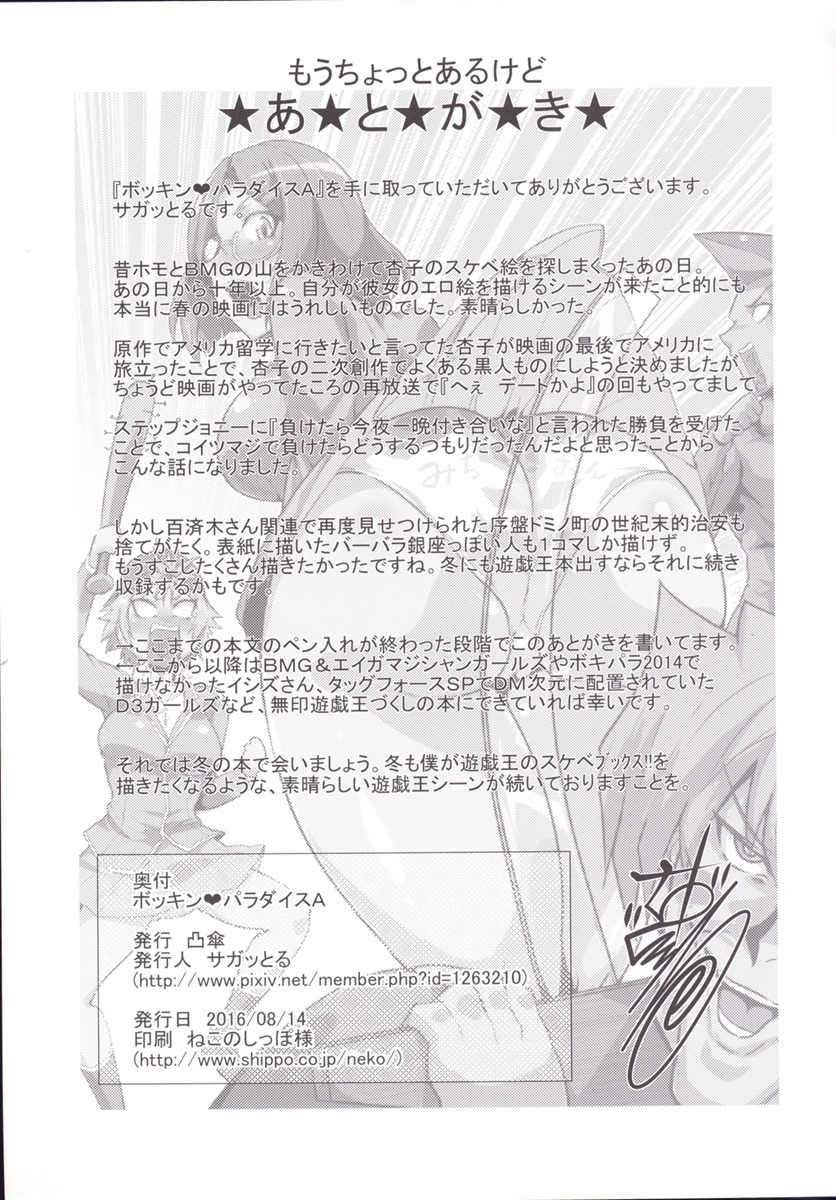 もうちょっとあるけど
★あ★と★が★き★
『ボッキン❤パラダイスA』を手に取っていただいてありがとうございます。
サガッとるです。
昔ホモとBMGの山をかきわけて杏子のスケベ絵を探しまくったあの日。
あの日から十年以上。自分が彼女のエロ絵を描けるシーンが来たこと的にも
本当に春の映画にはうれしいものでした。素晴らしかった。
原作でアメリカ留学に行きたいと言ってた杏子が映画の最後でアメリカに
旅立ったことで、杏子の二次創作でよくある黒人ものにしようと決めましたが
ちょうど映画がやってたころの再放送で『へぇ デートかよ』の回もやってまして
ステップジョニーに『負けたら今夜一晩付き合いな』と言われた勝負を受けた
ことで、コイツマジで負けたらどうするつもりだったんだよと思ったことから
こんな話になりました。
しかし百済木さん関連で再度見せつけられた序盤ドミノ町の世紀末的治安も
捨てがたく。表紙に描いたバーバラ銀座っぽい人も1コマしか描けず。
もうすこしたくさん描きたかったですね。冬にも遊戯王本出すならそれに続き
収録するかもです。
→ここまでの本文のペン入れが終わった段階でこのあとがきを書いてます。
←ここから以降はBMG＆エイガマジシャンガールズやボキパラ2014で
描けなかったイシズさん、タッグフォースSPでDM次元に配置されていた
D3ガールズなど、無印遊戯王づくしの本にできていれば幸いです。
それでは冬の本で会いましょう。冬も僕が遊戯王のスケベブックス!!を
描きたくなるような、素晴らしい遊戯王シーンが続いておりますことを。
奥付
ボッキン❤パラダイスA
発行 凸傘
発行人 サガッとる
(http://www.pixiv.net/member.php?id=1263210)
発行日 2016/08/14
印刷 ねこのしっぽ様
(http://www.shippo.co.jp/neko/)